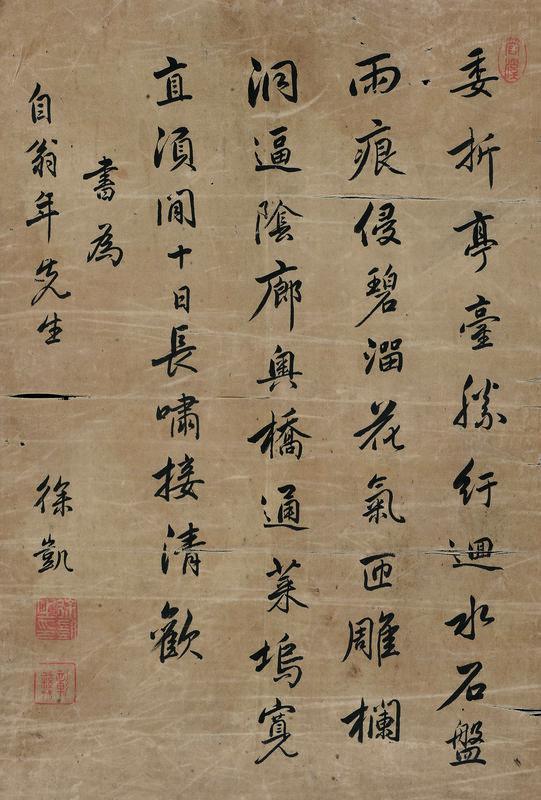 委折亭臺勝紆迴水石盤
雨痕侵碧溜花氣匝雕欄
洞逼陰廊奧橋通菜塢寬
直須閒十日長嘯接清歡
書為
自翁年先生
徐凱